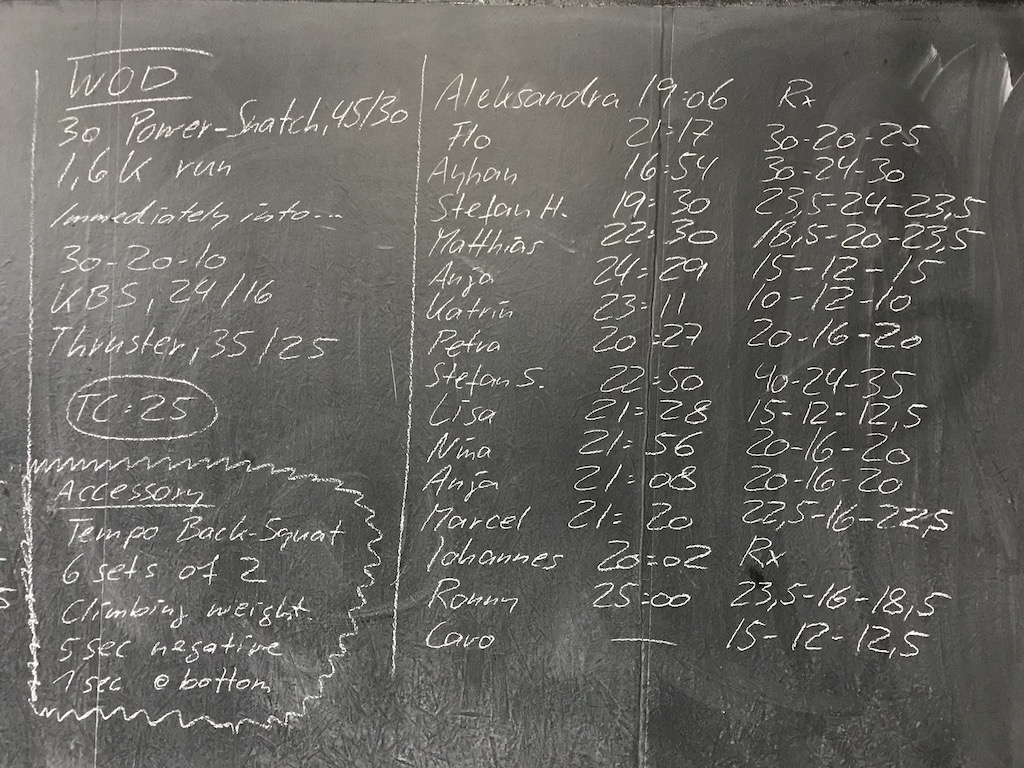 WOD
30 Power-Snatch, 45/30
1,6K run
Immediately into...
30-20-10
KBS, 24/16
Thruster, 35/25
TC: 25
Accessory
Tempo Back-Squat
6 sets of 2
Climbing weight
5 sec negative
1 sec @ bottom
Aleksandra 19:06 Rx
Flo 21:17 30-20-25
Ayhan 16:54 30-24-30
Stefan H. 19:30 23,5-24-23,5
Matthias 22:30 18,5-20-23,5
Anja 24:29 15-12-15
Katrin 23:11 10-12-10
Petra 20:27 20-16-20
Stefan S. 22:50 40-24-35
Lisa 21:28 15-12-12,5
Nina 21:56 20-16-20
Anja 21:08 20-16-20
Marcel 21:20 22,5-16-22,5
Johannes 20:02 Rx
Ronny 25:00 23,5-16-18,5
Caro — 15-12-12,5